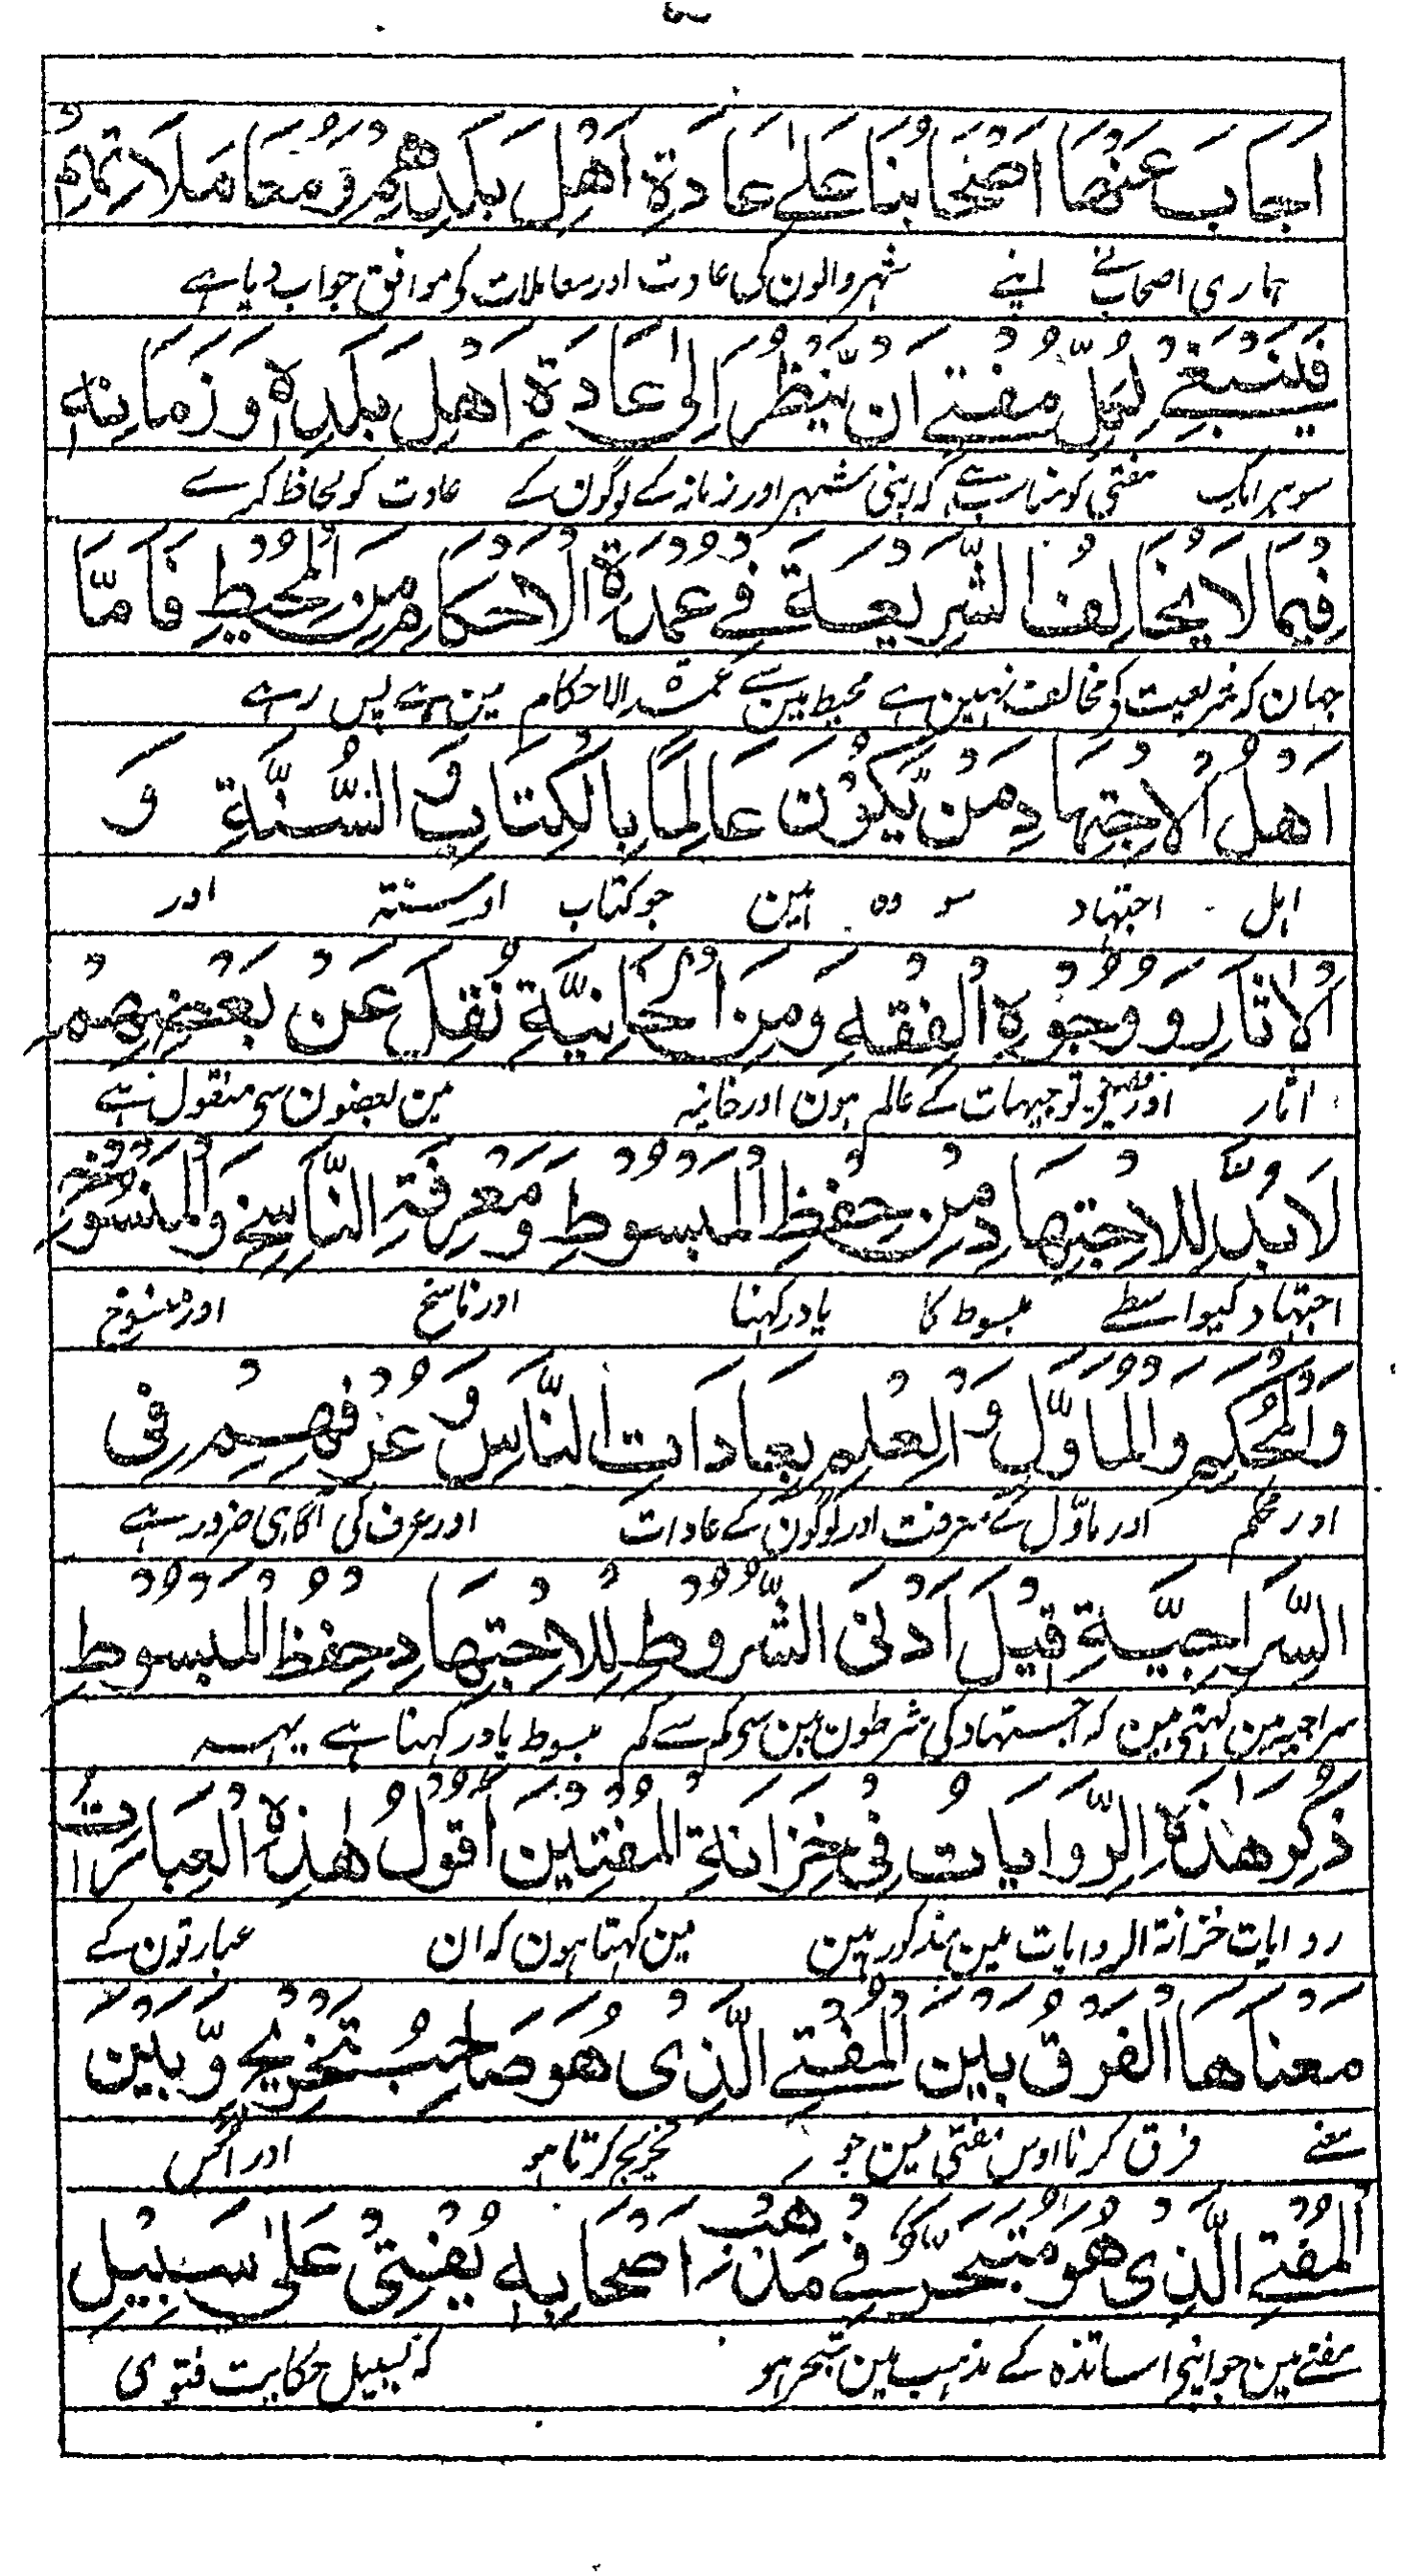 اَجَابَ عَنْهَا اَصْحَابُنَا عَلٰى عَادَةِ اَهْلِ بَلَدِهِمْ وَمُعَامَلَاتِهِمْ
ہماری اصحاب نے اپنے شہر والون کی عادت اور معاملات کی موافق جواب دیا ہے
فَيَنْبَغِيْ لِكُلِّ مُفْتِيْ اَنْ يَّنْظُرَ اِلٰى عَادَةِ اَهْلِ بَلَدِهٖ وَزَمَانِهٖ
سو ہر ایک مفتی کو مناسب ہے کہ اپنی شہر اور زمانہ کے لوگون کے عادت کو لحاظ کرے
فِيْمَا لَا يُخَالِفُ الشَّرِيْعَةَ فِيْ عُمْدَةِ الْاَحْكَامِ مِنَ الْمُحِيْطِ فَاَمَّا
جہان کہ شریعت کی مخالف نہین ہے محیط مین سے عمدۃ الاحکام مین ہے پس رہے
اَهْلُ الْاِجْتِهَادِ مَنْ يَّكُوْنُ عَالِمًا بِالْكِتَابِ وَ السُّنَّةِ وَ
اہل اجتہاد سو وہ ہین جو کتاب اور سنتہ اور
الْاٰثَارِ وَ وُجُوْهِ الْفِقْهِ وَمِنَ الْخَانِيَّةِ نُقِلَ عَنْ بَعْضِهِمْ
اثار اور فقہی توجیہات کے عالم ہون اور خانیہ مین بعضون سی منقول ہے
لَابُدَّ لِلْاِجْتِهَادِ مِنْ حِفْظِ الْمَبْسُوْطِ وَمَعْرِفَةِ النَّاسِخِ وَالْمَنْسُوْخِ
اجتہاد کیواسطے مبسوط کا یاد رکہنا اور ناسخ اور منسوخ
وَالْمُحْكَمِ وَالْمَاَوَّلِ وَ الْعِلْمِ بِعَادَاتِ النَّاسِ وَ عُرْفِهِمْ فِى
اور محکم اور ماوّل کے معرفت اور لوگون کے عادات اور عرف کی آگاہی ضرور ہے
السِّرَاجِيَّةِ قِيْلَ اَدْنَى الشُّرُوْطِ لِلْاِجْتِهَادِ حِفْظُ الْمَبْسُوْطِ
سراجیہ مین کہتی ہین کہ اجتہاد کی شرطون مین سی کم سے کم مبسوط یاد رکہنا ہے یہہ
ذُكِرَ هٰذِهِ الرِّوَايَاتُ فِى خِزَانَةِ الْمُفْتِيْنَ اَقُوْلُ هٰذِهِ الْعِبَارَاتُ
روایات خزانۃ الروایات مین مذکور ہین مین کہتا ہون کہ ان عبارتون کے
مَعْنَاهَا الْفَرْقُ بَيْنَ الْمُفْتِيْ الَّذِى هُوَ صَاحِبُ تَخْرِيْجٍ وَّ بَيْنَ
معنے فرق کرنا اوس مفتی مین جو تخریج کرتا ہو اور اس
الْمُفْتِيْ الَّذِى هُوَ مُتَبَحِّرٌ فِيْ مَذْهَبِ اَصْحَابِهٖ يُفْتِىْ عَلٰى سَبِيْلِ
مفتے مین جو اپنی اساتذہ کے مذہب مین متبحر ہو کہ بسبیل حکایت فتوی